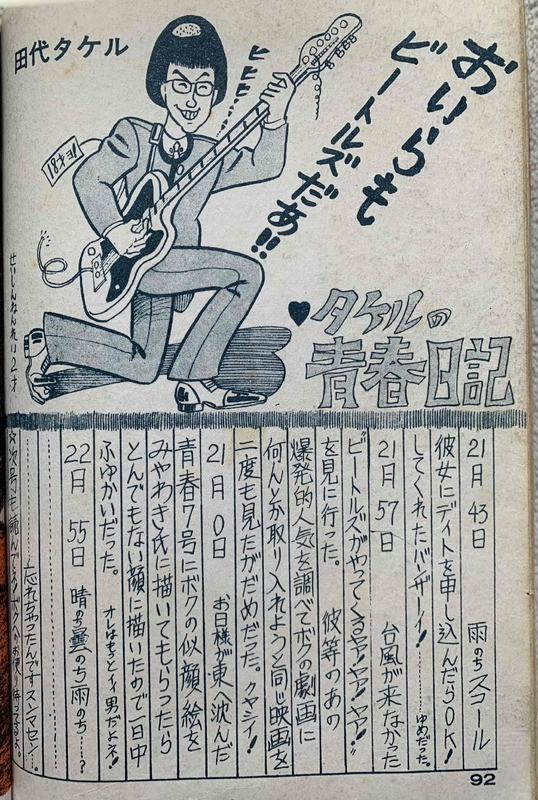 田代タケル
おいらも
ビートルズだあ!!
ビビビ
18才ヨ!
せいしんねんれい2才
♥タケルの
青春日記
21日 43日 雨のちスコール
彼女にデイトを申し込んだらOK!
してくれたバンザーイ!………ゆめだった。
21日 57日 台風が来なかった
ビートルズがやってくるヤァ!ヤァ!ヤァ!!
を見に行った。 彼等のあの
爆発的人気を調べてボクの劇画に
何んとか取り入れようと同じ映画を
二度も見たがだめだった。クヤシイ!
21日 0日 お日様が東へ沈んだ
青春7号にボクの似顔絵を
みやわき氏に描いてもらったら
とんでもない顔に描いたので一日中
ふゆかいだった。 オレはもっとイイ男だよネ!
22日 55日 晴のち曇のち雨のち……?
………忘れちゃったんですスンマセン…
☆次号も読んでネ
92